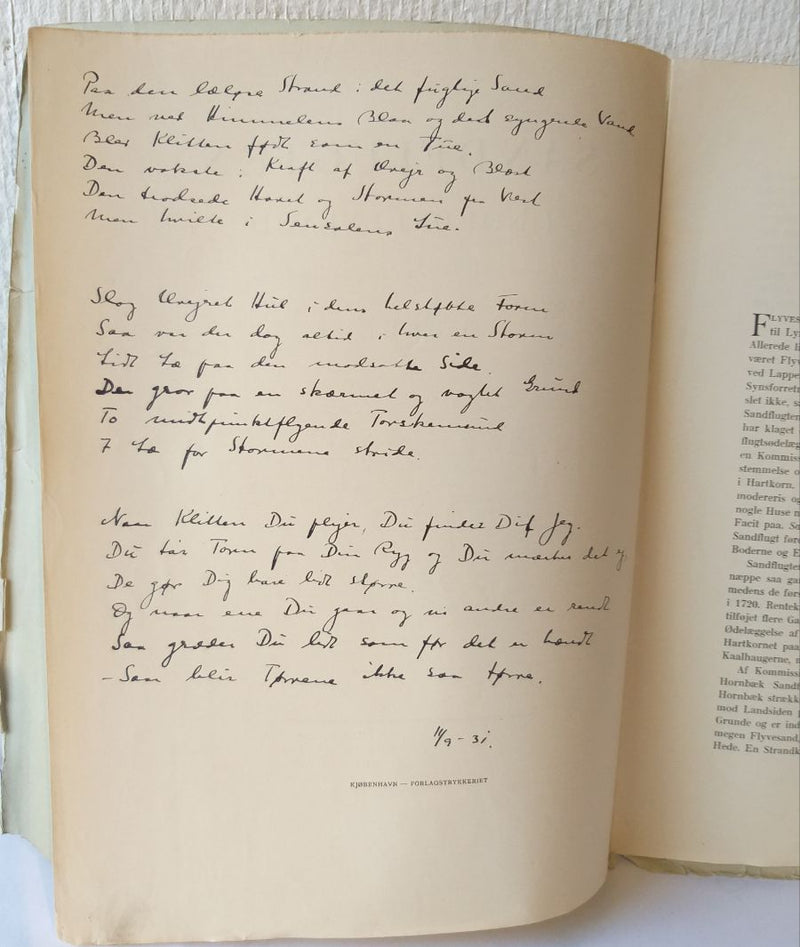 Paa den læløse Strand i det fugtige Sand
Men ved Himmelens Blaa og det syngende Vand
Blev Klitten født som en Tue.
Den voksede i Kraft af Uvejr og Blæst
Den trodsede Havet og Stormen fra Vest
Men hvilte i Solens Lue.
Slog Uvejret Hul i dens helstøbte Form
Saa var der dog altid i hver en Storm
Lidt Læ paa den modsatte Side.
Der gror paa en skærmet og vogtet Grund
To Torskemund
I Læ for Stormene stride.
Naar Klitten Du pløjer, Du finder Dit Jeg.
Du tar Torn paa Din Ryg og Du mærker det ej
De gør Dig bare lidt større.
Og naar ene Du gaar og vi andre er rendt
Saa græder Du lidt som før det er hændt
– Saa blir Tørrene ikke saa tørre.
11/9 – 31.
KJØBENHAVN — FORLAGSTRYKKERIET
FLYVES
til Ly
Allerede li
været Flyv
ved Lappe
Synsforretn
slet ikke, sa
Sandflugten
har klaget
flugtsødelæg
en Kommiss
stemmelse o
i Hartkorn.
modereris og
nogle Huse n
Facit paa. So
Sandflugt føre
Boderne og E
Sandflugten
næppe saa ga
medens de førs
i 1720. Rentek
tilføjet flere Ga
Ødelæggelse af
Hartkornet paa
Kaalhaugerne, a
Af Kommissi
Hornbæk Sandf
Hornbæk strækk
mod Landsiden
Grunde og er ind
megen Flyvesand,
Hede. En Strandk